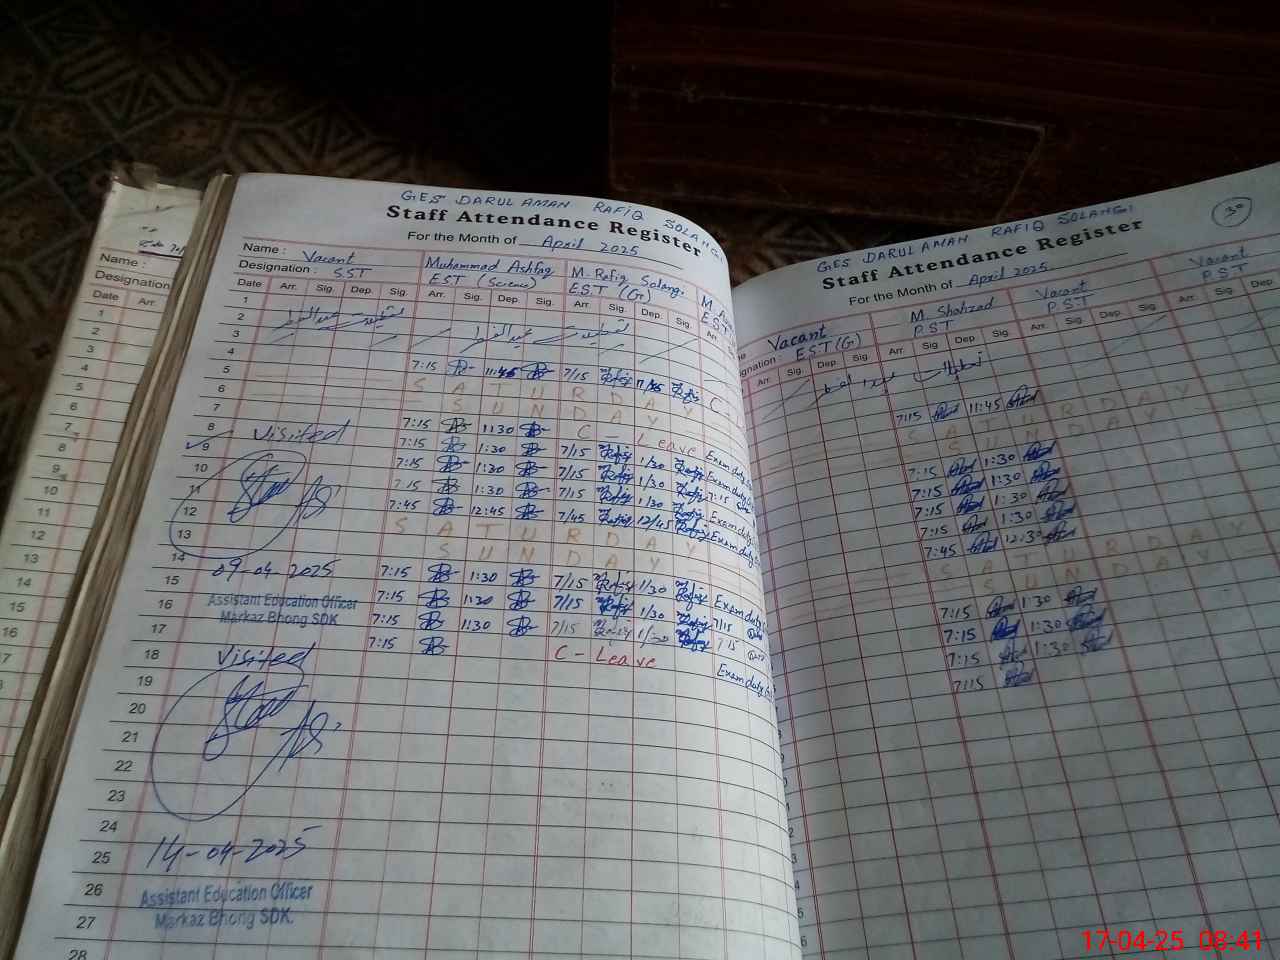 GES DARUL AMAN RAFIQ SOLANGI
Staff Attendance Register
For the Month of April 2025
Name : Vacant Muhammad Ashfaq M. Rafiq Solangi
Designation : SST EST (Science) EST (G)
Date Arr. Sig. Dep. Sig. Arr. Sig. Dep. Sig. Arr. Sig. Dep. Sig. Arr.
1
2
3
4 7:15 11:45 7/15 11/45 C-
5 SATURDAY
6 SUNDAY
7 7:15 1:30 C - Leave
8 Visited 7:15 1:30 7/15 1/30 Exam duty
9 7:15 1:30 7/15 1/30 Exam duty
10 7:15 1:30 7/15 1/30 7:15
11 7:45 12:45 7/45 12/45 Exam duty
12 SATURDAY
13 SUNDAY
14 09-04-2025 7:15 1:30 7/15 1/30 Exam duty
15 Assistant Education Officer 7:15 1:30 7/15 1/30 7/15
16 Markaz Bhong SDK 7:15 1:30 7/15 1/30 7/15
17 7:15 C - Leave Exam duty
18 Visited
19
20
21
22
23
24
25 14-04-2025
26 Assistant Education Officer
27 Markaz Bhong SDK.
28
GES DARUL AMAN RAFIQ SOLANGI
30
Staff Attendance Register
For the Month of April 2025
Vacant M. Shahzad Vacant Vacant
EST (G) PST PST PST
Arr. Sig. Dep. Sig. Arr. Sig. Dep. Sig. Arr. Sig. Dep. Sig. Arr. Sig. Dep.
7:15 11:45
SATURDAY
SUNDAY
7:15 1:30
7:15 1:30
7:15 1:30
7:15 1:30
7:45 12:30
SATURDAY
SUNDAY
7:15 1:30
7:15 1:30
7:15 1:30
7:15
Name :
Designation
Date Arr.
1
2
3
4
5
6
7
8
9
10
11
12
13
14
15
16
17-04-25 08:41